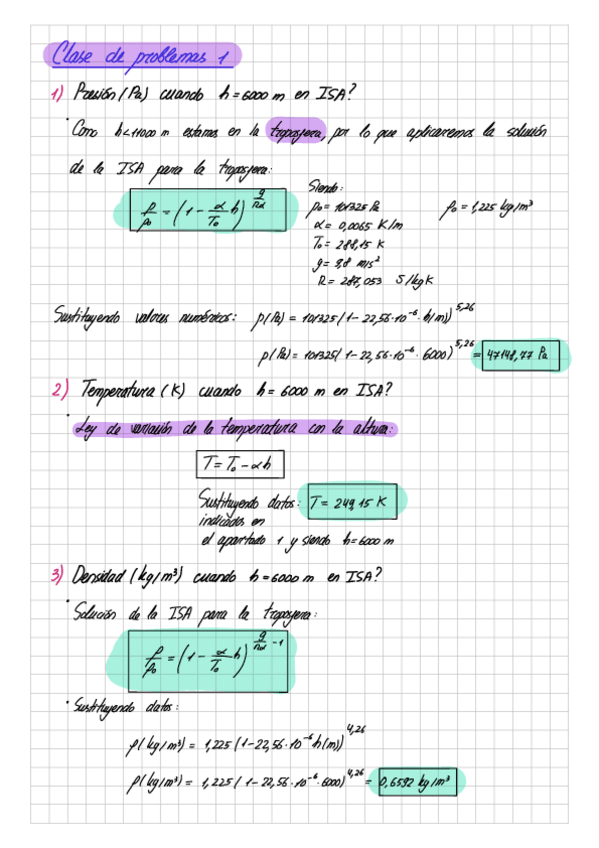 Clase de problemas 1
1) Presión (Pa) cuando h = 6000 m en ISA?
· Como h < 11000 m estamos en la troposfera, por lo que aplicaremos la solución
de la ISA para la troposfera:
p/p₀ = (1 - α/T₀ h)^(g/Rα)
Siendo:
p₀ = 101325 Pa ρ₀ = 1,225 kg/m³
α = 0,0065 K/m
T₀ = 288,15 K
g = 9,8 m/s²
R = 287,053 J/kg K
Sustituyendo valores numéricos: p(Pa) = 101325 (1 - 22,56·10⁻⁶·h(m))^5,26
p(Pa) = 101325 (1 - 22,56·10⁻⁶·6000)^5,26 = 47148,77 Pa
2) Temperatura (K) cuando h = 6000 m en ISA?
· Ley de variación de la temperatura con la altura:
T = T₀ - αh
Sustituyendo datos: T = 249,15 K
indicados en
el apartado 1 y siendo h = 6000 m
3) Densidad (kg/m³) cuando h = 6000 m en ISA?
· Solución de la ISA para la troposfera:
ρ/ρ₀ = (1 - α/T₀ h)^(g/Rα - 1)
· Sustituyendo datos:
ρ(kg/m³) = 1,225 (1 - 22,56·10⁻⁶ h(m))^4,26
ρ(kg/m³) = 1,225 (1 - 22,56·10⁻⁶·6000)^4,26 = 0,6592 kg/m³